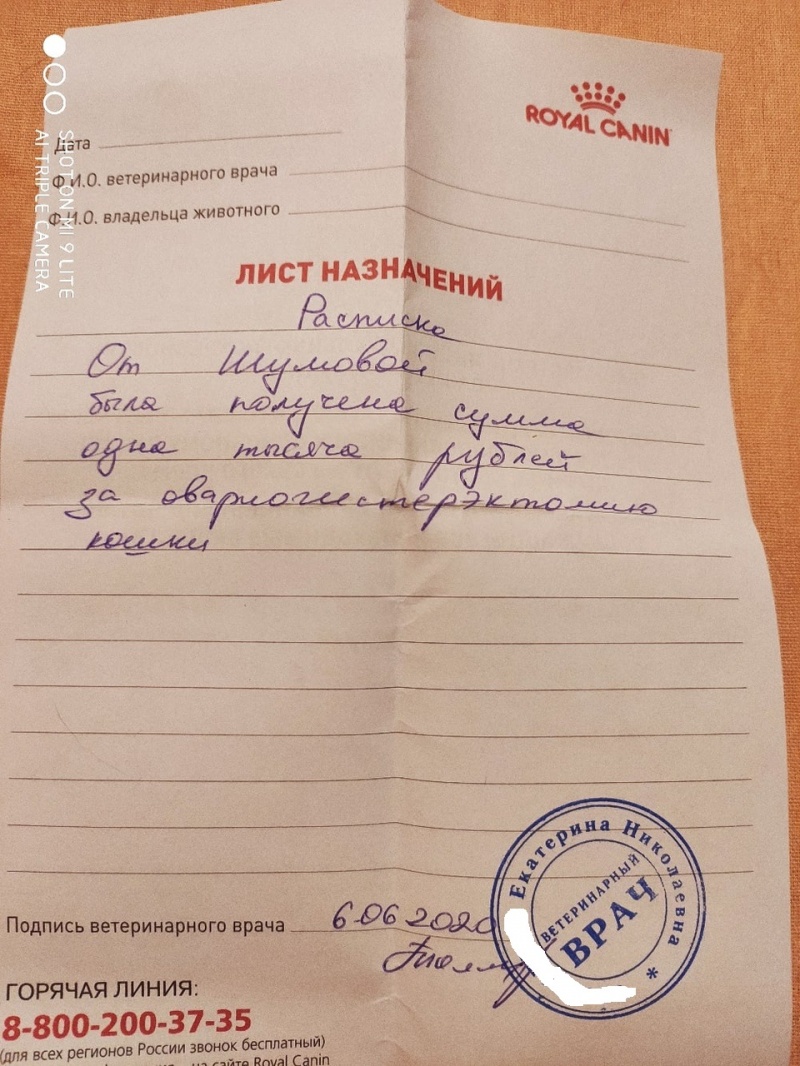 SHOT ON MI 9 LITE
AI TRIPLE CAMERA
ROYAL CANIN
Дата
Ф.И.О. ветеринарного врача
Ф.И.О. владельца животного
ЛИСТ НАЗНАЧЕНИЙ
Расписка
От Шумовой
была получена сумма
одна тысяча рублей
за овариогистерэктомию
кошки
Екатерина Николаевна
ВЕТЕРИНАРНЫЙ
ВРАЧ
*
Подпись ветеринарного врача 6 06 2020
ГОРЯЧАЯ ЛИНИЯ:
8-800-200-37-35
(для всех регионов России звонок бесплатный)
на сайте Royal Canin